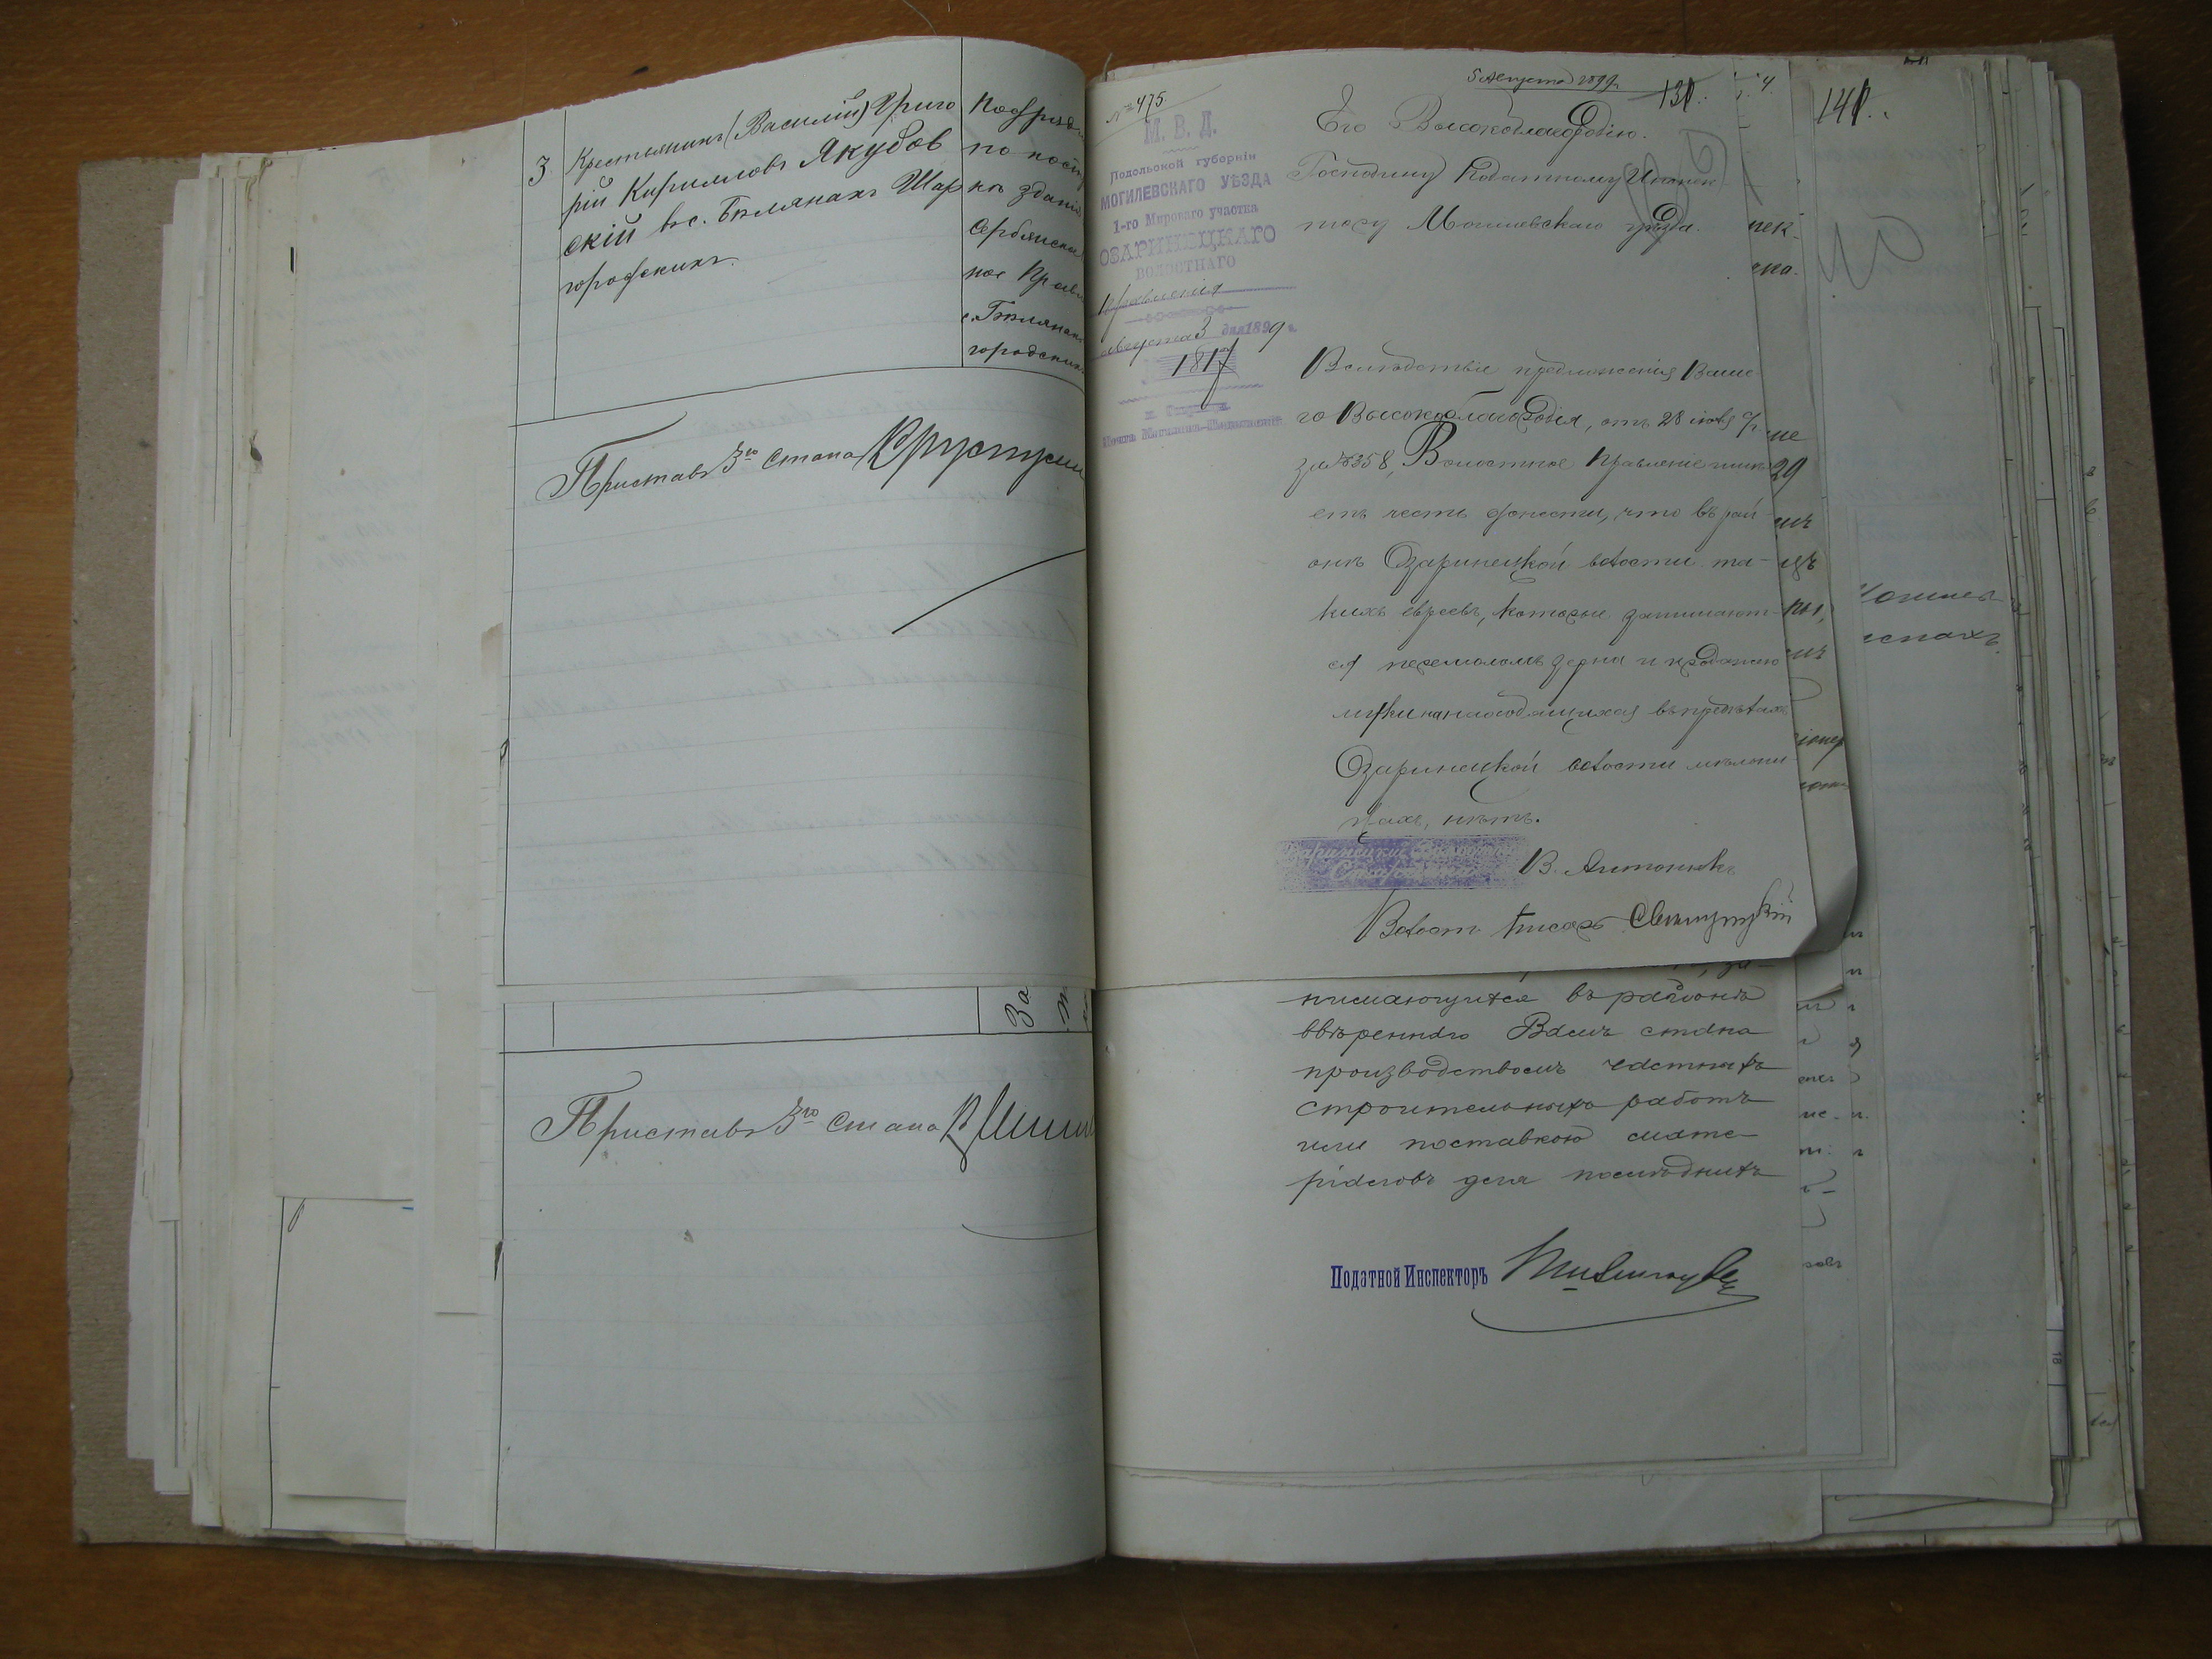 3
Крестьянинъ (Василій) Григо
рій Кирилловъ Якубов
скій въ с. Бѣлянахъ Шар
городскихъ.
Подряд
по пост
къ здані
Сербянска
ное Прав
с. Бѣлянах
городских
Приставъ 3го Стана
За
Приставъ 3го Стана
№ 475.
5 Августа 1899 г.
М. В. Д.
Подольской губерніи
МОГИЛЕВСКАГО УѢЗДА
1-го Мирового участка
ОЗАРИНЕЦКАГО
ВОЛОСТНАГО
Правленія
Августа 3 дня 1899 г.
1817
Его Высокоблагородію.
Господину Податному Инспек
тору Могилевскаго уѣзда.
Вслѣдствіе предложенія Ваше
го Высокоблагородія, отъ 28 іюля
за № 358, Волостное Правленіе имѣ
етъ честь донести, что въ рай
онѣ Озаринецкой волости та-
кихъ евреевъ, которые занимают-
ся перемоломъ зерна и продажею
муки на находящихся въ предѣлахъ
Озаринецкой волости мельни
цахъ, нѣтъ.
Озаринецкій Волостной
Старшина
В. Антонюкъ
Волост. Писарь
нимающихся въ районѣ
ввѣреннаго Вамъ стана
производствомъ частныхъ
строительныхъ работъ
или поставкою мате-
ріаловъ для послѣднихъ
Податной Инспекторъ
141.
нек-
29
18